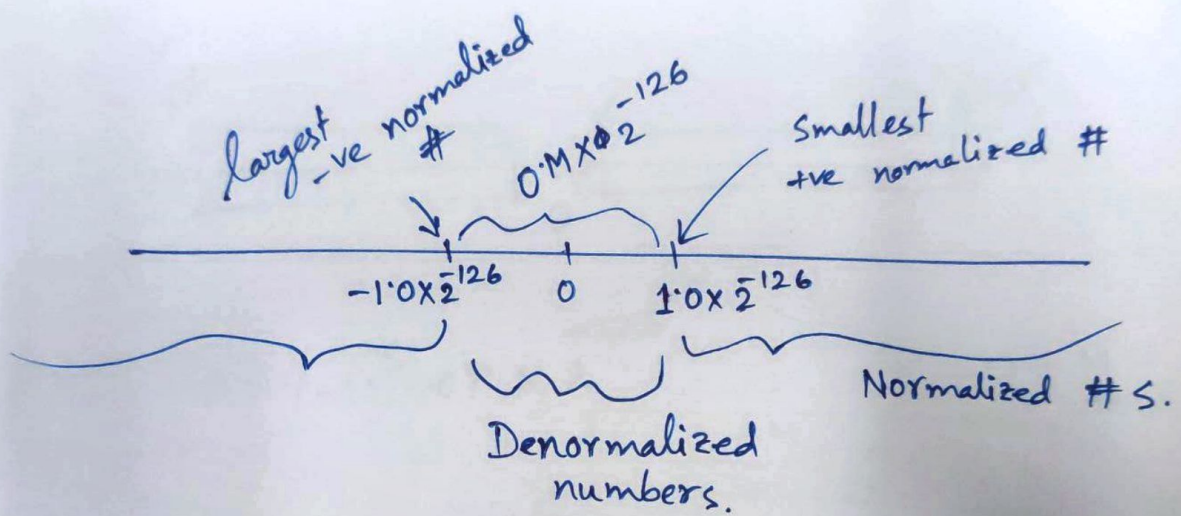 largest
-ve normalized
#
0.M X 2^-126
smallest
+ve normalized #
-1.0 X 2^-126
0
1.0 X 2^-126
Normalized # s.
Denormalized
numbers.